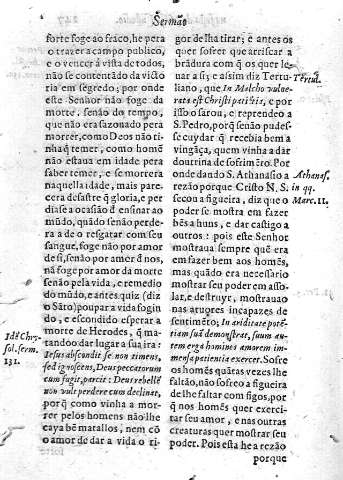 Sermão
forte foge ao fraco, he pera
o trazer a campo publico,
e o vencer á vista de todos,
não se contentādo da victo
ria em segredo; por onde
este Senhor não foge da
morte, senão do tempo,
que não era sazonado pera
morrer, como Deos não ti
nha q̃ temer, como homẽ
não estaua em idade pera
saber temer, e se morrera
naquella idade, mais pare
cera desastre q̃ gloria, e per
diase a ocasiāo d̃ ensinar ao
mũdo, quādo senão perde-
ra a de o resgatar com seu
sangue, foge não por amor
de si, senão por amer d̃ nos,
nā foge por amor da morte
senão pela vida, e remedio
do mũdo, e antes quiz (diz
o Sāto) poupar a vida fogin
do, e escondido esperar a
morte de Herodes, q̃ ma-
tandoo dar lugar a sua ira:
Iesus abscondit se non timens,
sed ignoscens, Deus peccatorum
cum fugit, parcit: Deus rebellẽ
non vult perdere cum declinat,
porq̃ como vinha a mor-
rer pelos homens não lhe
caya bẽ matallos, nem cõ
o amor de dar a vida o ri-
Idẽ Chry
sol. serm.
131.
gor de lha tirar; e antes os
quer sofrer que arriscar a
brādura com q̃ os quer le
uar a si; e assim diz Tertu-
liano, que In Malcho vulne-
rata est Christi patiētia, e por
isso o sarou, e reprendeo a
S. Pedro, porq̃ senão pudes-
se cuydar q̃ recebia bem a
vingāça, quem vinha a dar
doutrina de sofrimẽto. Por
onde dando S. Athanasio a
rezāo porque Cristo N. S.
secou a figueira, diz que o
poder se mostra em fazer
bẽs a huns, e dar castigo a
outros: pois este Senhor
mostraua sempre quẽ era
em fazer bem aos homẽs,
mas quādo era necessario
mostrar seu poder em asso-
lar, e destruyr, mostrauao
nas aruores incapazes de
sentimẽto; In ariditate potẽ-
tiam suā demonstrat, suum au-
tem erga homines amorem im-
mensa patientia exercer. Sofre
os homẽs quātas vezes lhe
faltão, nāo sofreo a figueira
de lhe faltar com figos, por
q̃ nos homẽs quer exerci-
tar seu amor, e nas outras
creaturas quer mostrar seu
poder. Pois esta he a rezāo
porque
Tertul.
Athanas.
in qq.
Marc. 11.